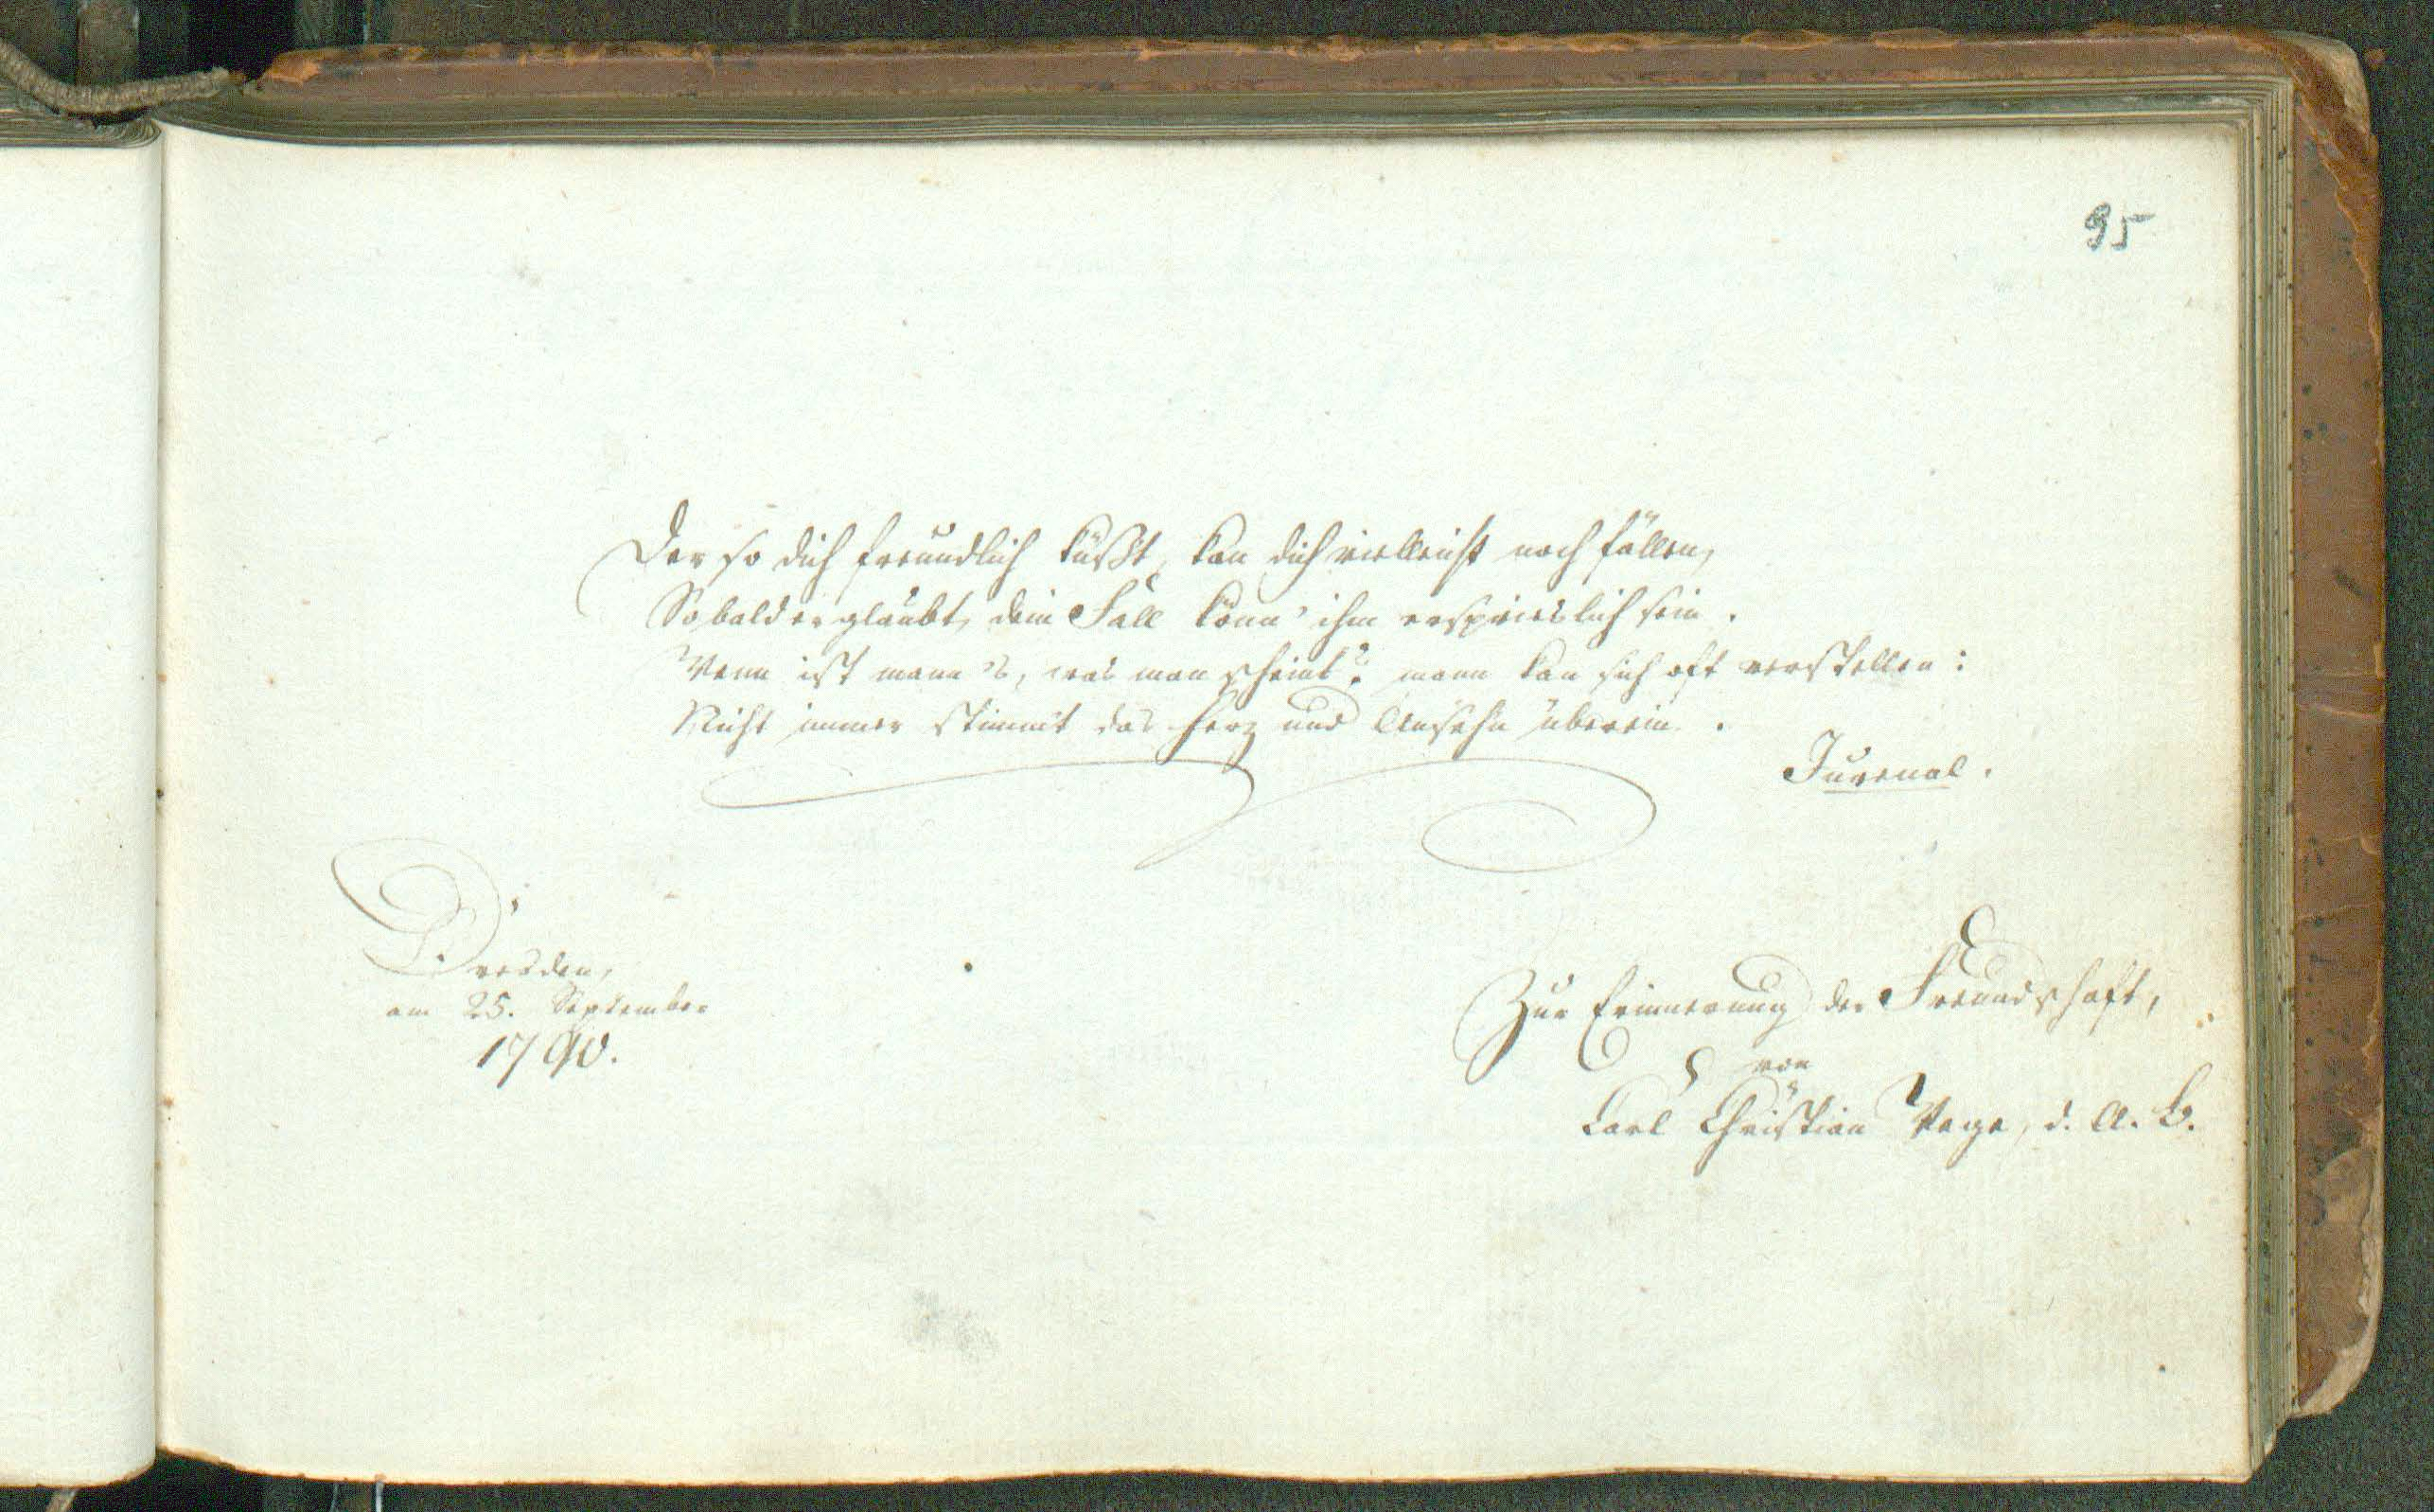 95
Der so dich freundlich küßt, kan dich vielleicht noch fällen,
Sobald er glaubt, dein Fall könn' ihm ersprieslich sein.
Wenn ist mann's, was man scheint? mann kan sich oft verstellen:
Nicht immer stimmt das Herz und Ansehn überein.
Juvenal.
Dresden,
am 25. September
1790.
Zur Erinnerung der Freundschaft,
von
Carl Christian Vege, d. A. B.